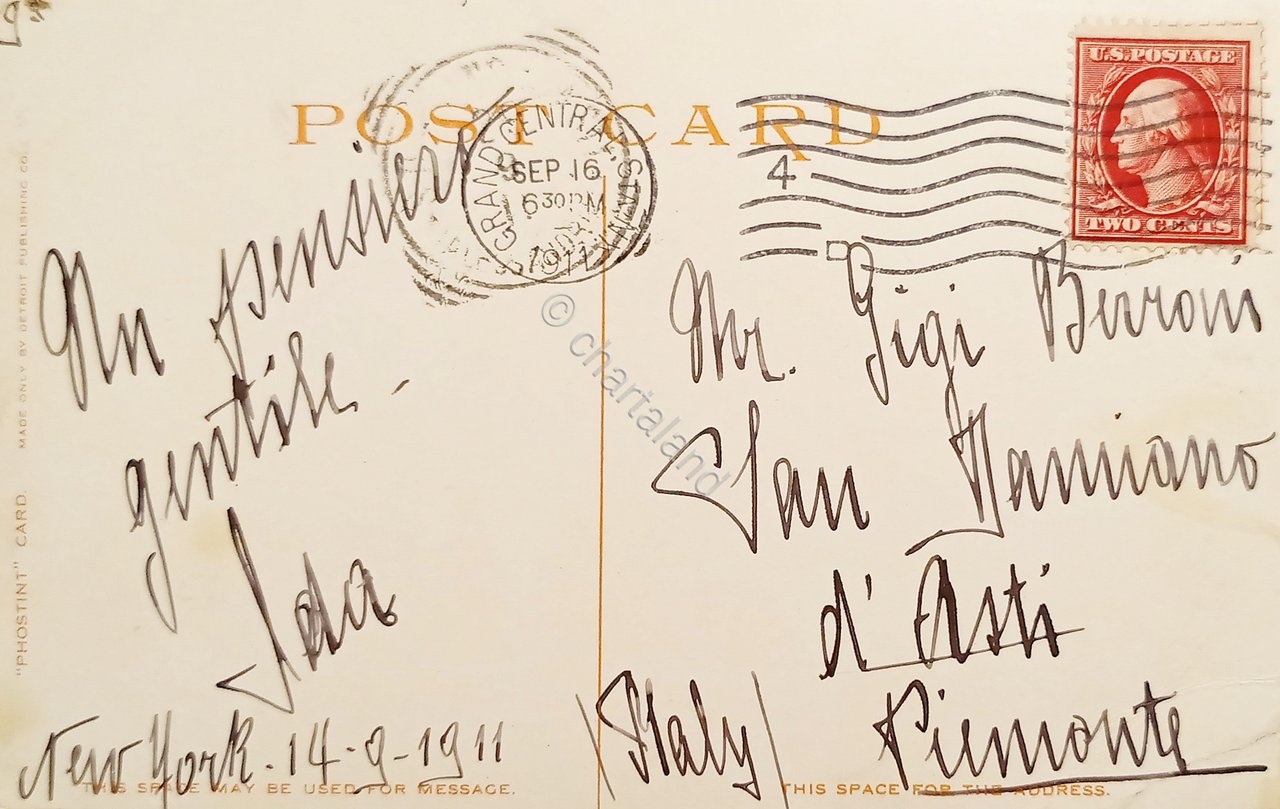 POST CARD
U.S. POSTAGE
TWO CENTS
GRAND CENTRAL STA. N.Y.
SEP 16
630 PM
1911
4
Un pensiero
gentile -
Ida
New York - 14-9-1911
Mr. Gigi Berroni
San Damiano
d'Asti
Piemonte
(Italy)
THIS SPACE MAY BE USED FOR MESSAGE.
THIS SPACE FOR THE ADDRESS.
"PHOSTINT" CARD. MADE ONLY BY DETROIT PUBLISHING CO.
© chartaland